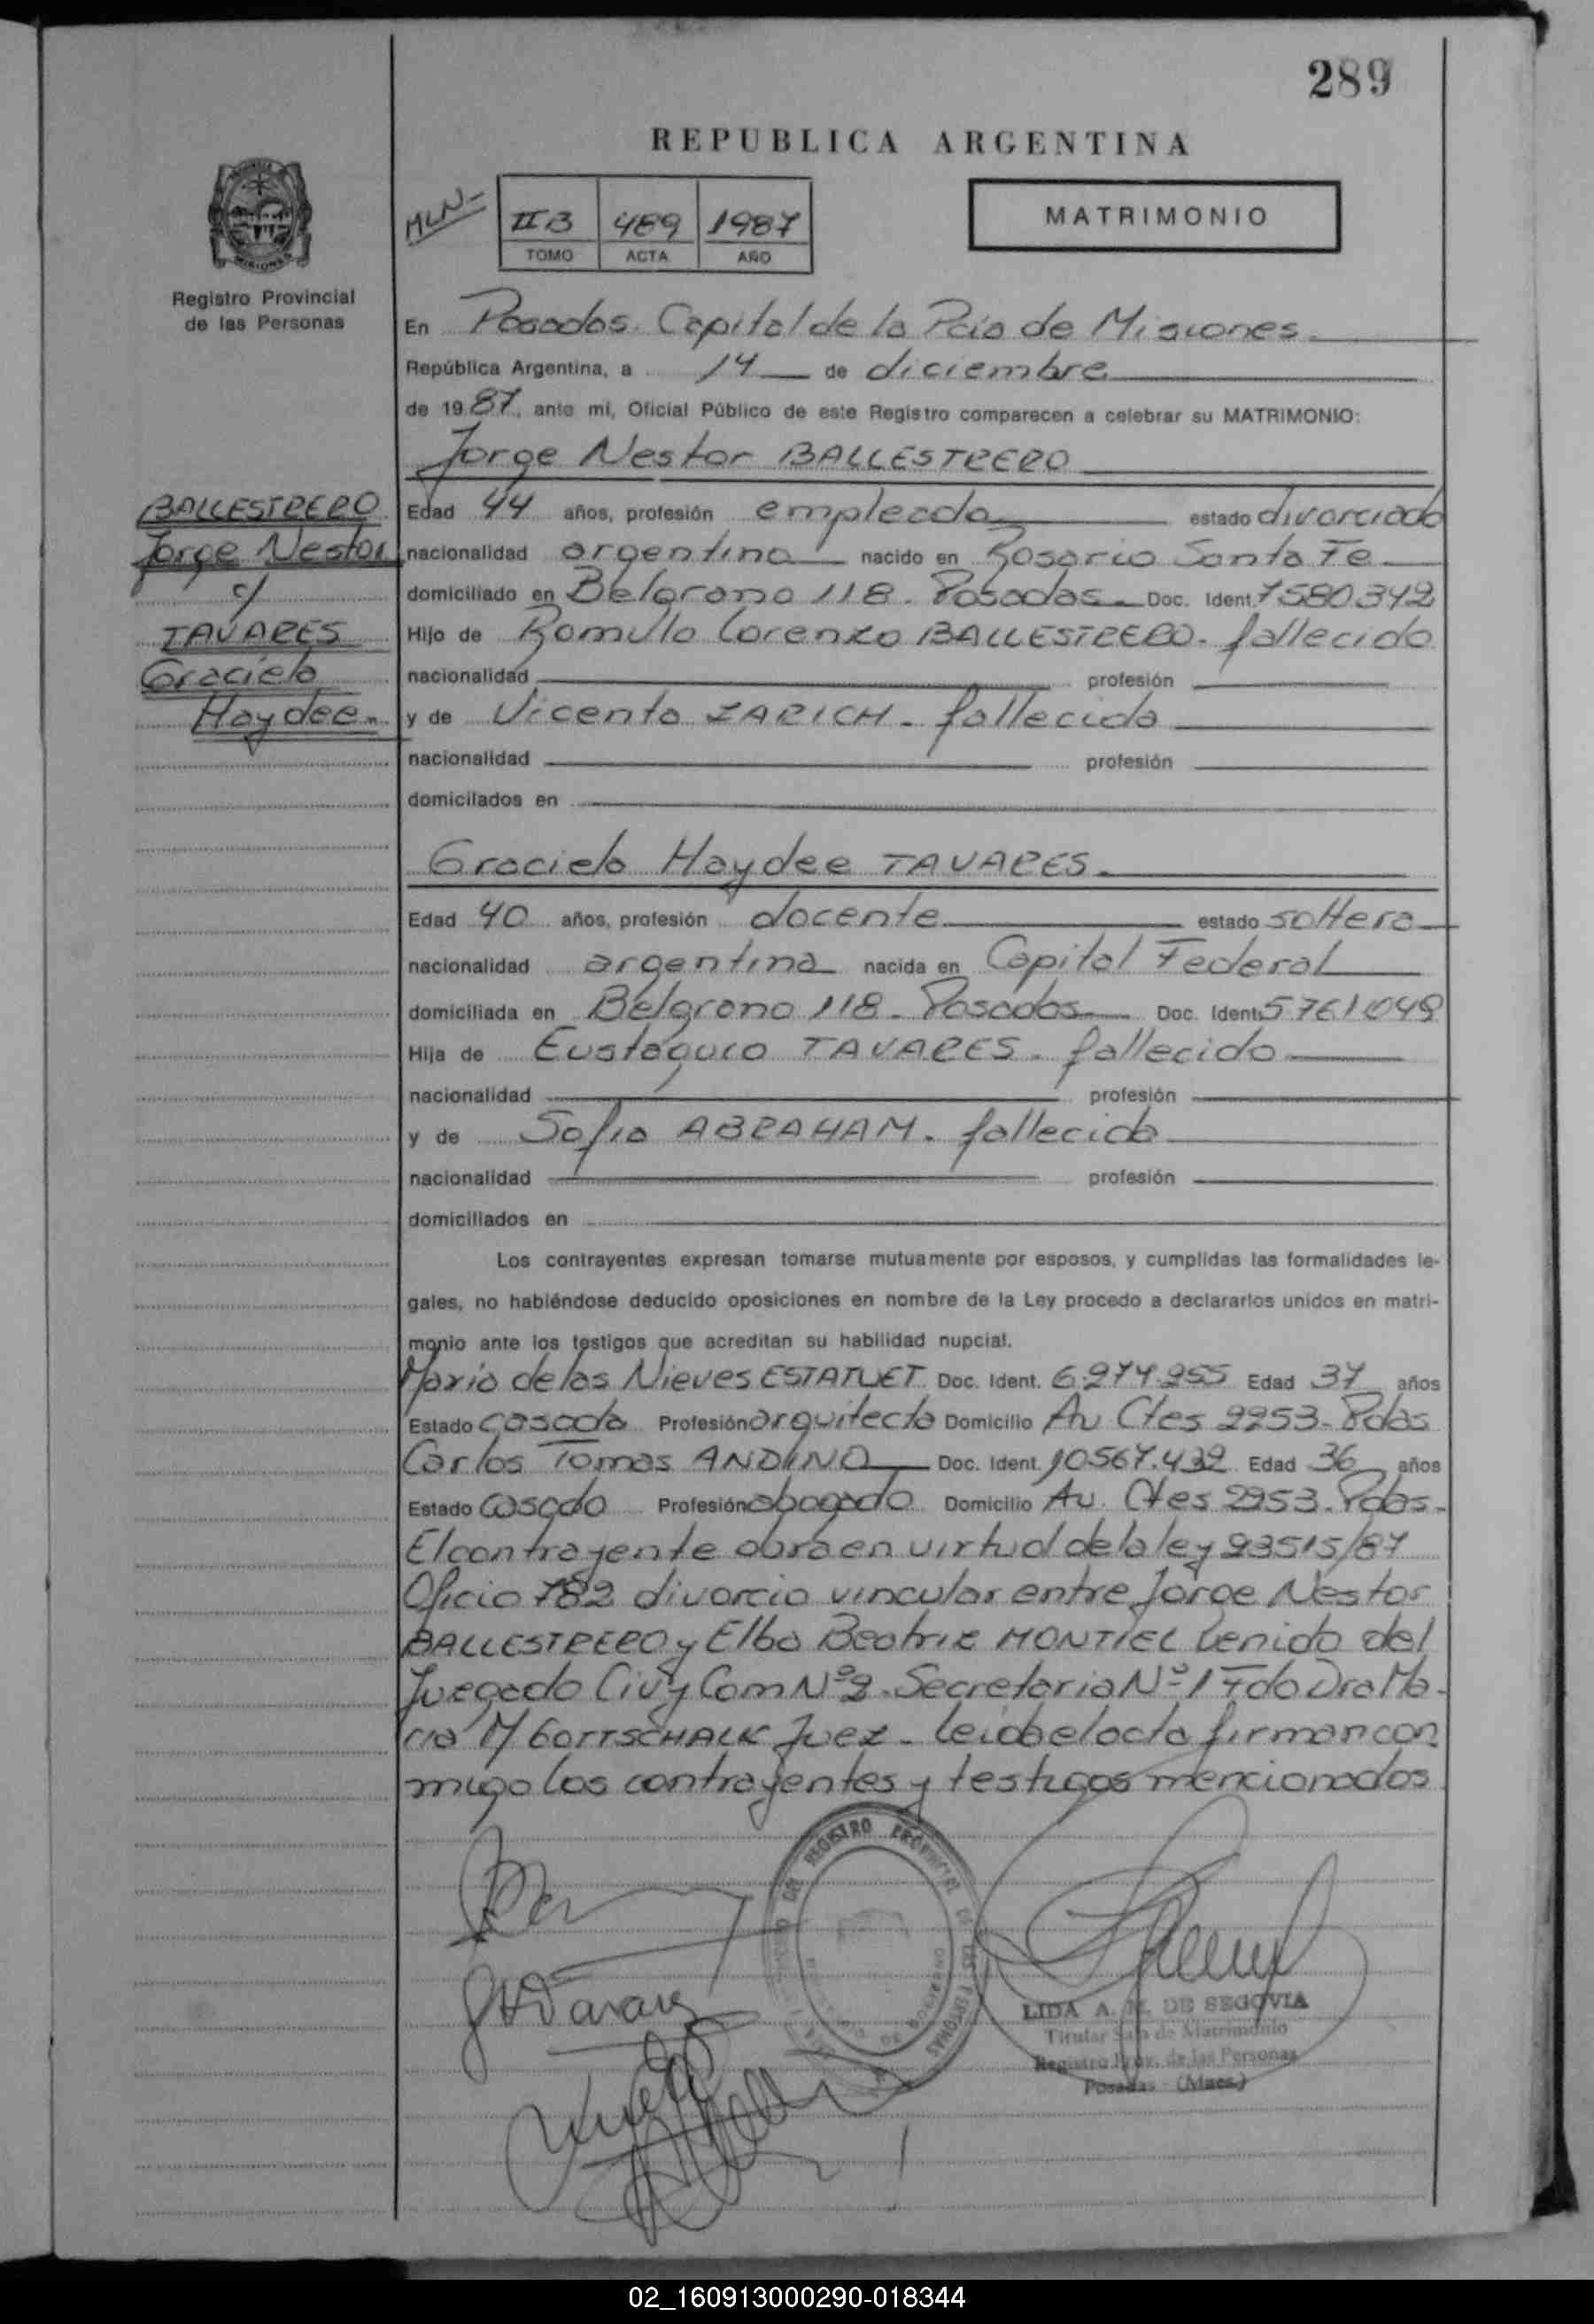 289
REPUBLICA ARGENTINA
MLN-
II B 489 1987
TOMO ACTA AÑO
MATRIMONIO
Registro Provincial
de las Personas
En Posadas. Capital de la Pcia de Misiones.
República Argentina, a 14 de diciembre
de 1987, ante mí, Oficial Público de este Registro comparecen a celebrar su MATRIMONIO:
Jorge Nestor BALLESTRERO
BALLESTRERO
Jorge Nestor
c/
TAVARES
Graciela
Haydee.
Edad 44 años, profesión empleado estado divorciado
nacionalidad argentina nacido en Rosario Santa Fe
domiciliado en Belgrano 118. Posadas Doc. Ident. 7580342
Hijo de Romulo Lorenzo BALLESTRERO. fallecido
nacionalidad profesión
y de Vicenta ZARICH. fallecida
nacionalidad profesión
domicilados en
Graciela Haydee TAVARES.
Edad 40 años, profesión docente estado soltera
nacionalidad argentina nacida en Capital Federal
domiciliada en Belgrano 118. Posadas Doc. Ident. 5.761.048
Hija de Eustaquio TAVARES. fallecido
nacionalidad profesión
y de Sofia ABRAHAM. fallecida
nacionalidad profesión
domiciliados en
Los contrayentes expresan tomarse mutuamente por esposos, y cumplidas las formalidades le-
gales, no habiéndose deducido oposiciones en nombre de la Ley procedo a declararlos unidos en matri-
monio ante los testigos que acreditan su habilidad nupcial.
Maria de las Nieves ESTATUET Doc. Ident. 6.274.255 Edad 37 años
Estado casada Profesión arquitecta Domicilio Av Ctes 2253. Pdas
Carlos Tomas ANDINO Doc. Ident. 10567.432 Edad 36 años
Estado casado Profesión abogado Domicilio Av. Ctes 2253. Pdas.
El contrayente obra en virtud de la ley 23515/87
Oficio 782 divorcio vincular entre Jorge Nestor
BALLESTRERO y Elba Beatriz MONTIEL venido del
Juzgado Civ y Com Nº 2. Secretaria Nº 1 Fdo Dra Ma-
ria M GOTTSCHALK Juez. Leida el acta firman con
migo los contrayentes y testigos mencionados
GHTavares
REGISTRO PROVINCIAL DE LAS PERSONAS
LIDA A. M. DE SEGOVIA
Titular Sala de Matrimonio
Registro Prov. de las Personas
Posadas - (Mnes.)
02_160913000290-018344